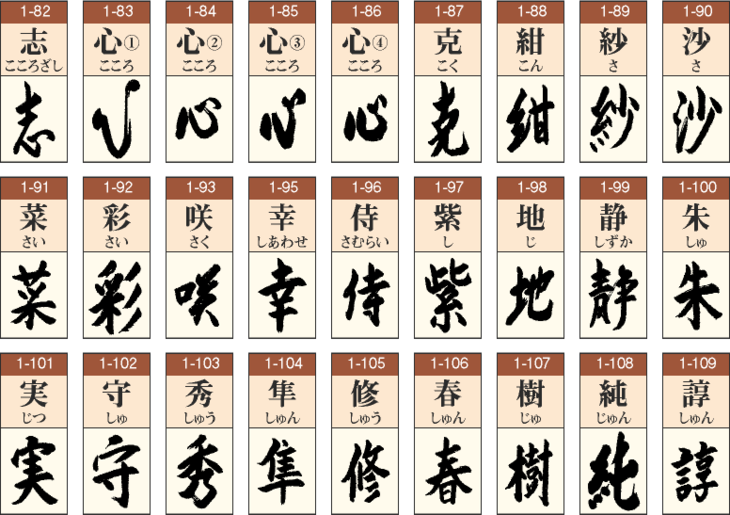 1-82 1-83 1-84 1-85 1-86 1-87 1-88 1-89 1-90
志 心① 心② 心③ 心④ 克 紺 紗 沙
こころざし こころ こころ こころ こころ こく こん さ さ
志 心 心 心 心 克 紺 紗 沙
1-91 1-92 1-93 1-95 1-96 1-97 1-98 1-99 1-100
菜 彩 咲 幸 侍 紫 地 静 朱
さい さい さく しあわせ さむらい し じ しずか しゅ
菜 彩 咲 幸 侍 紫 地 静 朱
1-101 1-102 1-103 1-104 1-105 1-106 1-107 1-108 1-109
実 守 秀 隼 修 春 樹 純 諄
じつ しゅ しゅう しゅん しゅう しゅん じゅ じゅん しゅん
実 守 秀 隼 修 春 樹 純 諄